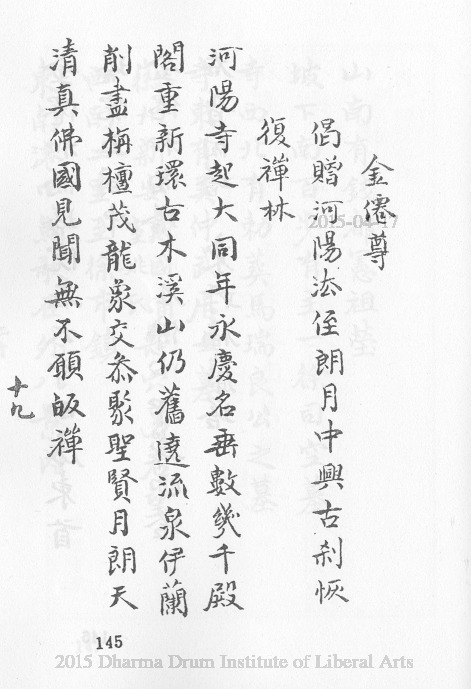 金僊尊
偈贈河陽法侄朗月中興古刹恢
復禪林
河陽寺起大同年永慶名垂數幾千殿
閣重新環古木溪山仍舊遶流泉伊蘭
削盡栴檀茂龍象交叅聚聖賢月朗天
清真佛國見聞無不願皈禪
十九
145
2015-04-17
2015 Dharma Drum Institute of Liberal Arts